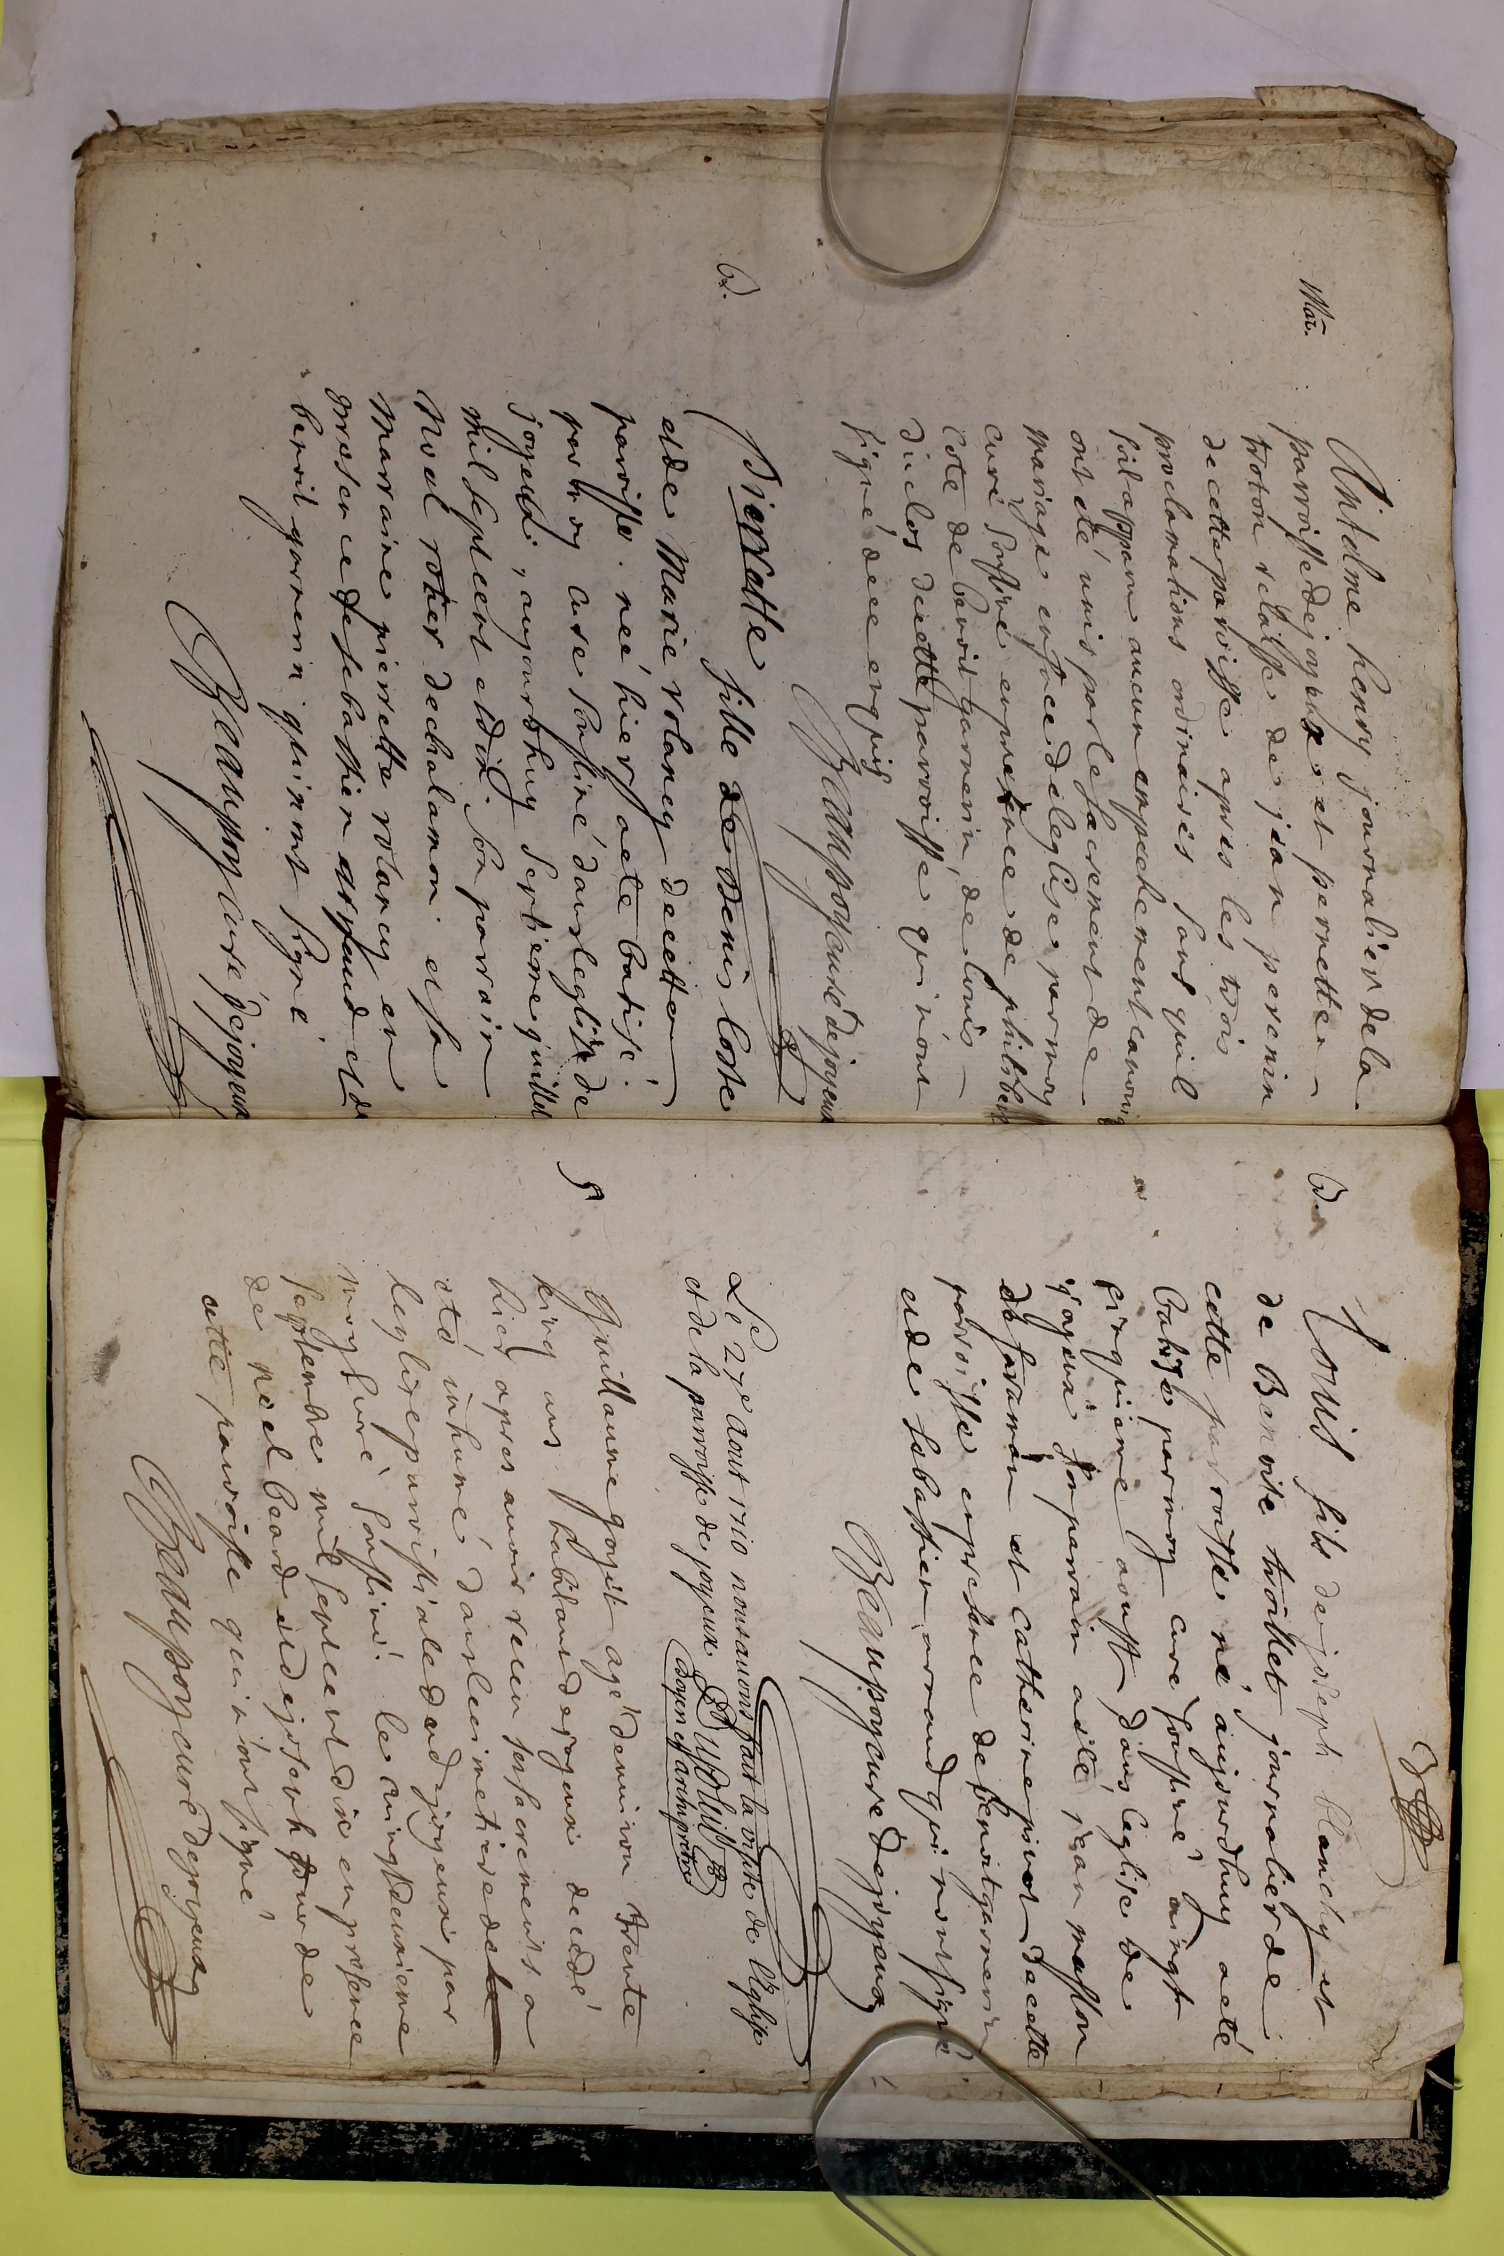 Mar.
Anthelme henry journalier de la
parroisse de joyeux et pernette
troton relaisse de jean perenin
de cette parroisse apres les trois
proclamations ordinaires sans quil
soit apparu aucun empechement canoniq
ont eté unis par le sacrement de
mariage en face de leglise par moy
curé soussiné en presence de philibert
cote de benoit garnerin, de louis
duclos de cette parroisse qui n'ont
signé de ce enquis
Beaupoy curé de joyeux
B.
Pierrette fille de denis coste
et de Marie rolancy de cette
parroisse. neé hier a eté batisé
par moy curé soussiné dans leglise de
joyeux, aujourdhuy septieme juillet
mil sept cent et dix. son parrain
Noel rotier de chalamon et sa
marraine pierrette rolancy en
presence de sebastien arnaud et de
benoit garnerin qui n'ont signé
Beaupoy curé de joyeux
8
B.
Louis fils de joseph blanchy et
de Benoite trollet journalier de
cette parroisse né aujourdhuy a eté
batisé par moy curé soussiné vingt
cinquieme aoust dans leglise de
joyeux son parrain a eté jean masson
de faraman et catherine pivet de cette
parroisse en presence de benoit garnerin
et de sebastien arnaud qui n'ont signé
Beaupoy curé de joyeux
Le 27e aout 1710 nous avons fait la visite de l'eglise
et de la parroisse de joyeux Dupuit
doyen et archipretre
S
Guillaume goyet agé denviron trente
cinq ans habitant de joyeux decedé
hier apres avoir receu ses sacrements a
eté inhumé dans le cimetiere de la
leglise parroissiale de joyeux par
moy curé soussiné le vingt deuxieme
septembre mil sept cent dix en presence
de noel beard et de joseph de
cette parroisse qui n'ont signé
Beaupoy curé de joyeux